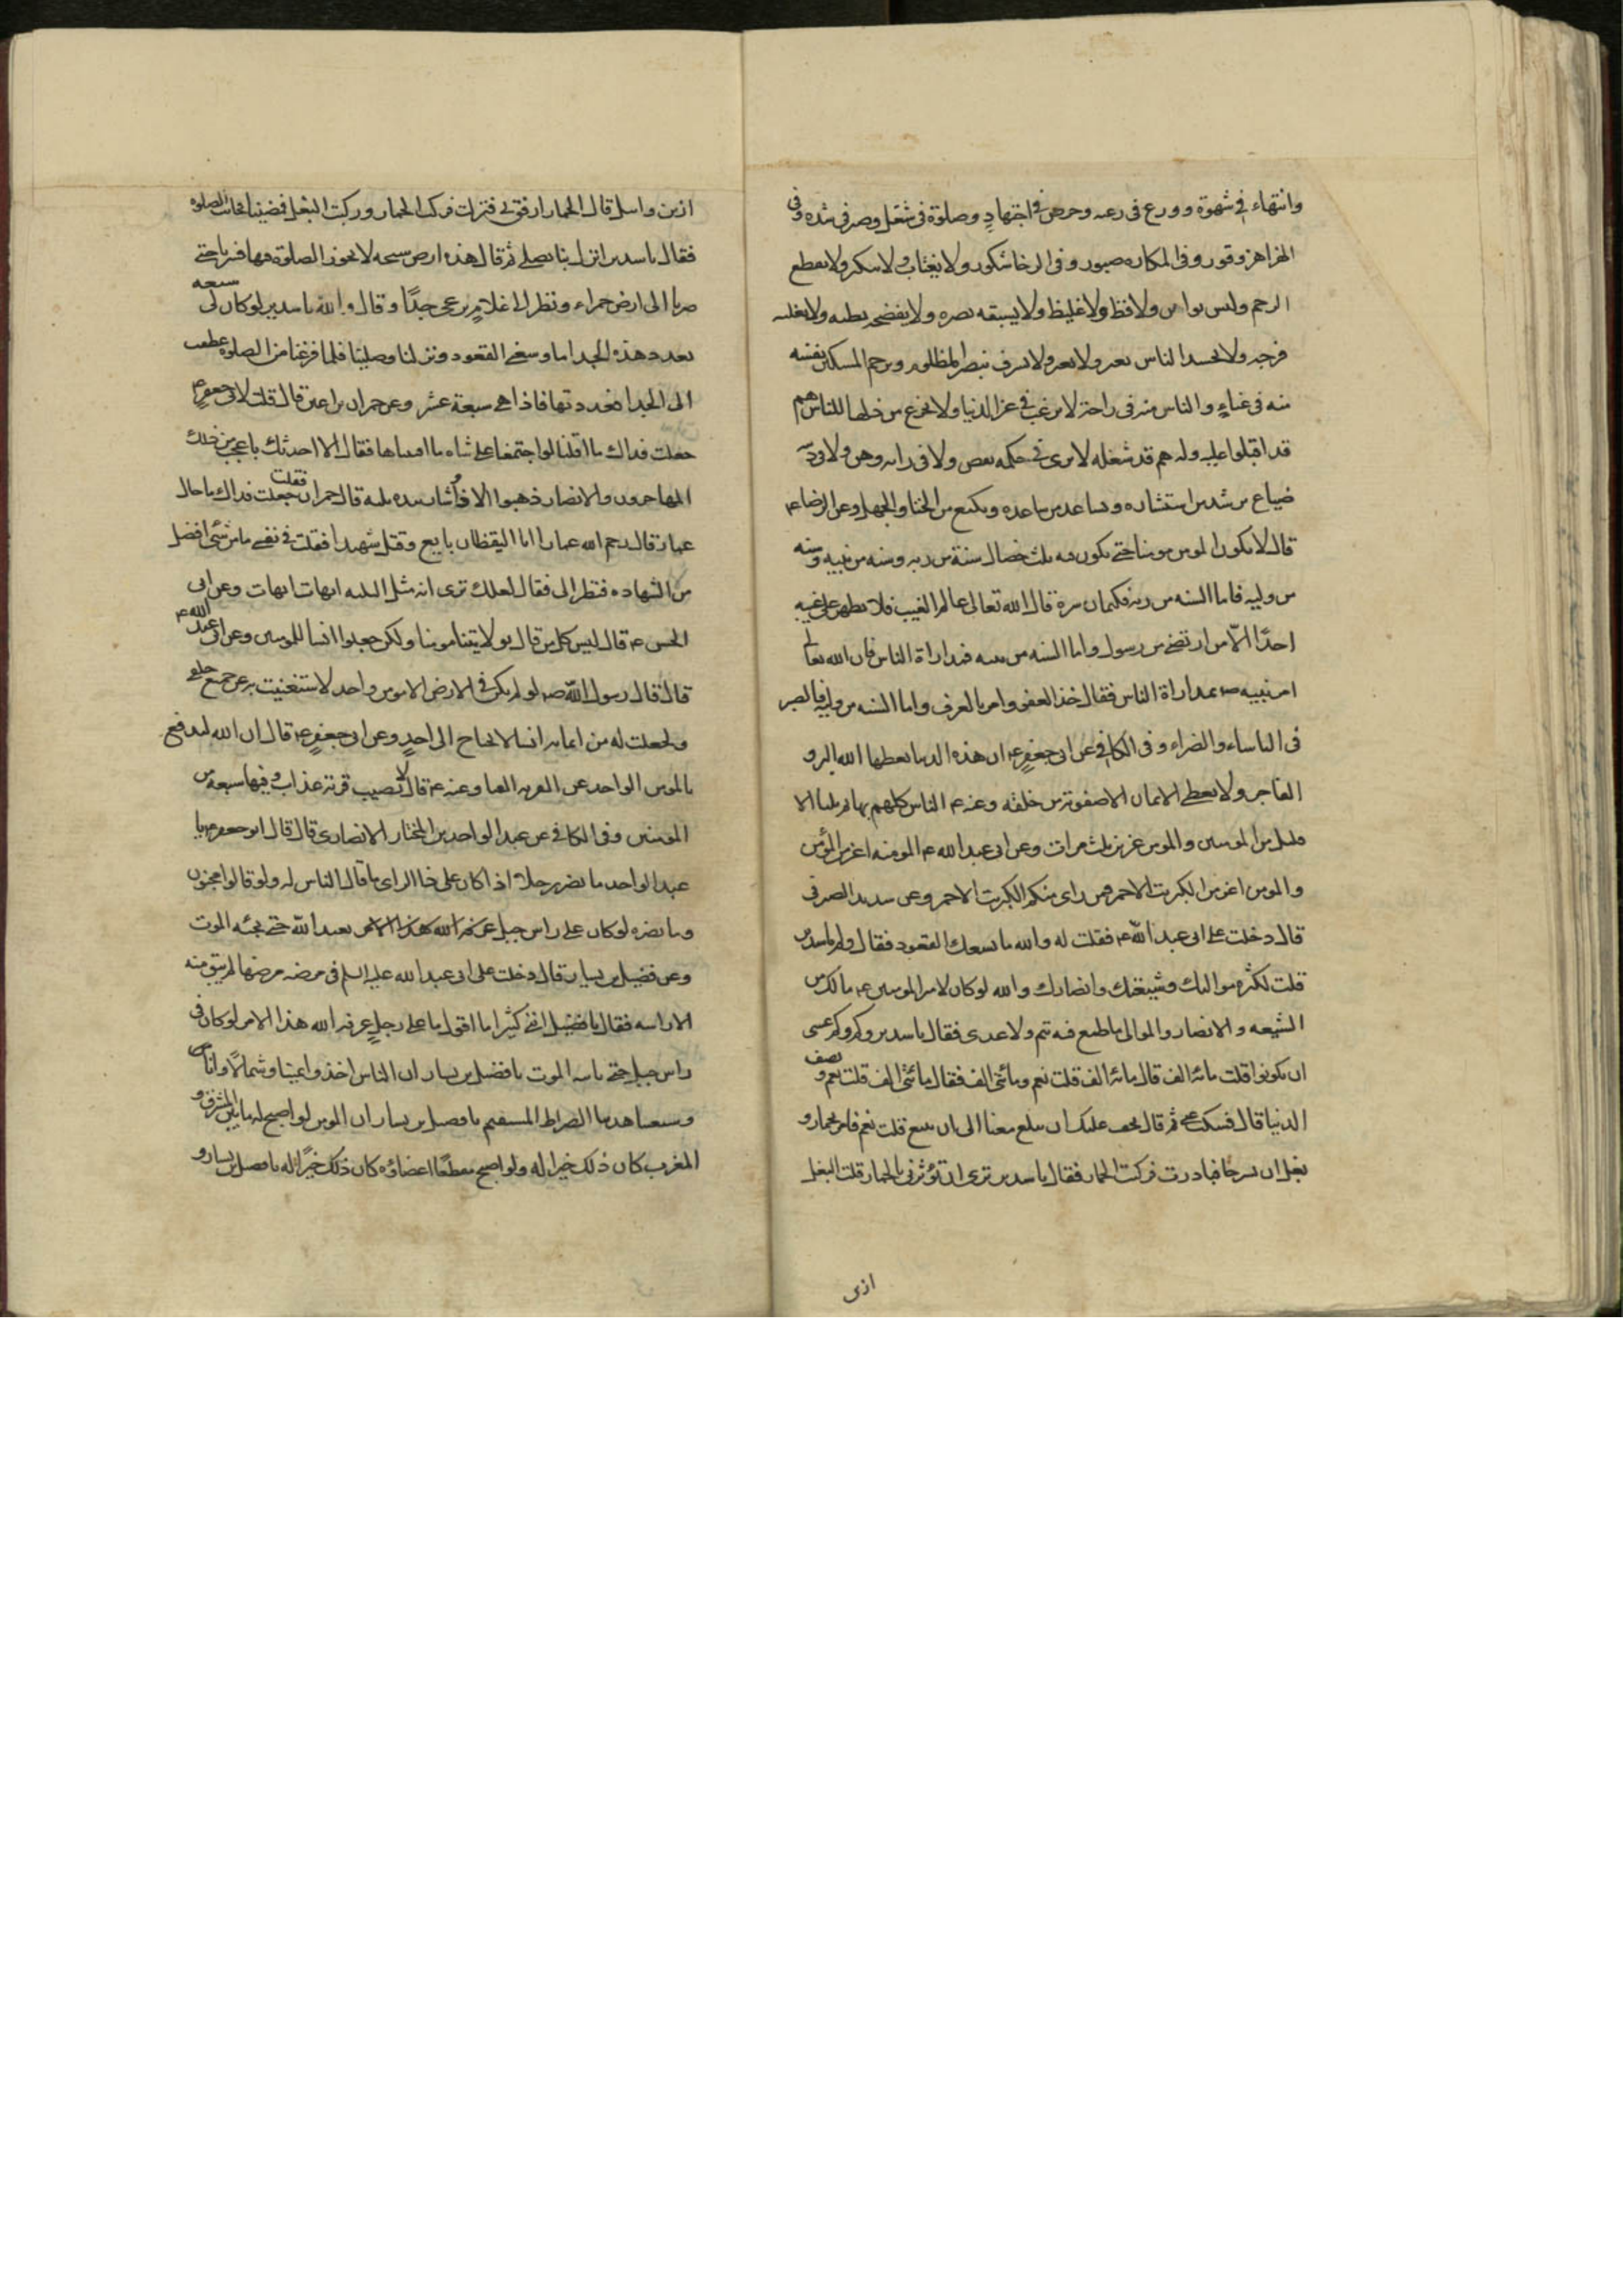 وانتهاء في شهوة وورع فى رعه وحرص في اجتهادٍ وصلوة فى شغل وصبر فى شده وفى
الهزاهز وقور وفى المكاره صبور وفى الرخا شكور ولا يغتاب ولا يتكبر ولا يقطع
الرحم وليس بواهن ولا فظ ولا غليظ ولا يسبقه بصره ولا يفضحه بطنه ولا يغلبه
فرجه ولا يحسد الناس يعير ولا يعير ولا يسرف ينصر المظلوم ويرحم المسكين نفسه
منه فى عناءٍ والناس منه فى راحة لا يرغب في عز الدنيا ولا يجزع من ذلها للناس هم
قد اقبلوا عليه وله هم قد شغله لا يرى في حكمه نقص ولا فى رايه وهن ولا فى دينه
ضياع يرشد من استشاره ويساعد من ساعده ويكيع من الخنا والجهل وعن الرضا ع
قال لا يكون المومن مومنا حتى يكون فيه ثلث خصال سنة من ربه وسنه من نبيه وسنه
من وليه فاما السنه من ربه فكتمان سره قال الله تعالى عالم الغيب فلا يظهر على غيبه
احدًا الّا من ارتضى من رسول واما السنه من نبيه فمداراة الناس فان الله تعالى
امر نبيه ص بمداراة الناس فقال خذ العفو وامر بالعرف واما السنه من وليه فالصبر
فى الباساء والضراء وفى الكافي عن ابى جعفر ع ان هذه الدنيا يعطيها الله البر و
الفاجر ولا يعطى الايمان الا صفوته من خلقه وعنه ع الناس كلهم بهايم ثلثا الا
قليل من المومنين والمومن عزيز ثلث مرات وعن ابى عبد الله ع المومنه اعز من المؤمن
والمومن اعز من الكبريت الاحمر فمن راى منكم الكبريت الاحمر وعن سدير الصيرفى
قال دخلت على ابى عبد الله ع فقلت له والله ما يسعك القعود فقال ولم يا سدير
قلت لكثرة مواليك وشيعتك وانصارك والله لو كان لامير المومنين ع ما لك من
الشيعه والانصار والموالى ما طمع فيه تيم ولا عدى فقال يا سدير وكم وكم عسى
ان يكونوا قلت مائة الف قال مائة الف قلت نعم ومائتى الف فقال مائتى الف قلت نعم و نصف
الدنيا قال فسكت عنى ثم قال يخف عليك ان تبلغ معنا الى ينبع قلت نعم فامر بحمار و
بغل ان يسرجا فبادرت فركبت الحمار فقال يا سدير ترى ان تؤثرنى بالحمار قلت البغل
ازى
ازين وانبل قال الحمار ارفق بى فنزلت فركب الحمار وركبت البغل فمضينا فحانت الصلوة
فقال يا سدير انزل بنا نصلى ثم قال هذه ارض سبخه لا يجوز الصلوة فيها فسرنا حتى
صرنا الى ارض حمراء ونظر الى غلامٍ يرعى جدًا وقال والله يا سدير لو كان لى شيعه
بعدد هذه الجدا ما وسعنى القعود ونزلنا وصلينا فلما فرغنا من الصلوة عطفت
الى الجدا فعددتها فاذا هى سبعة عشر وعن حمران بن اعين قال قلت لابى جعفر ع
جعلت فداك ما اقلنا لو اجتمعنا على شاه ما افنيناها فقال الا احدثك باعجب من ذلك
المهاجرون والانصار ذهبوا الا واشار بيده ثلثه قال حمران فقلت جعلت فداك ما حال
عمار قال رحم الله عمارا ابا اليقظان بايع وقتل شهيدا فقلت في نفسى ما من شئ افضل
من الشهاده فنظر الى فقال لعلك ترى انه مثل الثلثه ايهات ايهات وعن ابى
الحسن ع قال ليس كل من قال بولايتنا مومنا ولكن جعلوا انسا للمومنين وعن ابى عبد الله ع
قال قال رسول الله ص لو لم يكن في الارض الا مومن واحد لاستغنيت به عن جميع خلقى
ولجعلت له من ايمانه انسا لا يحتاج الى احدٍ وعن ابى جعفرٍ ع قال ان الله ليدفع
بالمومن الواحد عن القريه الفنا وعنه ع قال لا تصيب قرية عذاب وفيها سبعه من
المومنين وفى الكافي عن عبد الواحد بن المختار الانصارى قال قال ابو جعفر ع يا
عبد الواحد ما يضر رجلا اذا كان على ذا الراى ما قال الناس له ولو قالوا مجنون
وما يضره لو كان على راس جبل عرفه الله هذا الامر يعبد الله حتى يجئه الموت
وعن فضيل بن يسار قال دخلت على ابى عبد الله عليه السلم فى مرضه مرضها لم يبق منه
الا راسه فقال يا فضيل اننى كثيرا ما اقول ما على رجلٍ عرفه الله هذا الامر لو كان فى
راس جبل حتى ياتيه الموت يا فضيل بن يسار ان الناس اخذوا يمينا وشمالًا وانا
وشيعتنا هدينا الصراط المستقيم يا فضيل بن يسار ان المومن لو اصبح له ما بين المشرق و
المغرب كان ذلك خيرا له ولو اصبح مقطعًا اعضاؤه كان ذلك خيرًا له يا فضيل بن يسار و